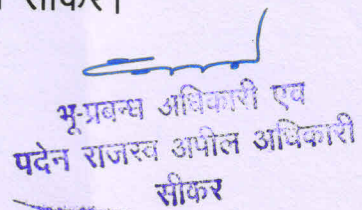 सीकर।
भू-प्रबन्ध अधिकारी एवं
पदेन राजस्व अपील अधिकारी
सीकर